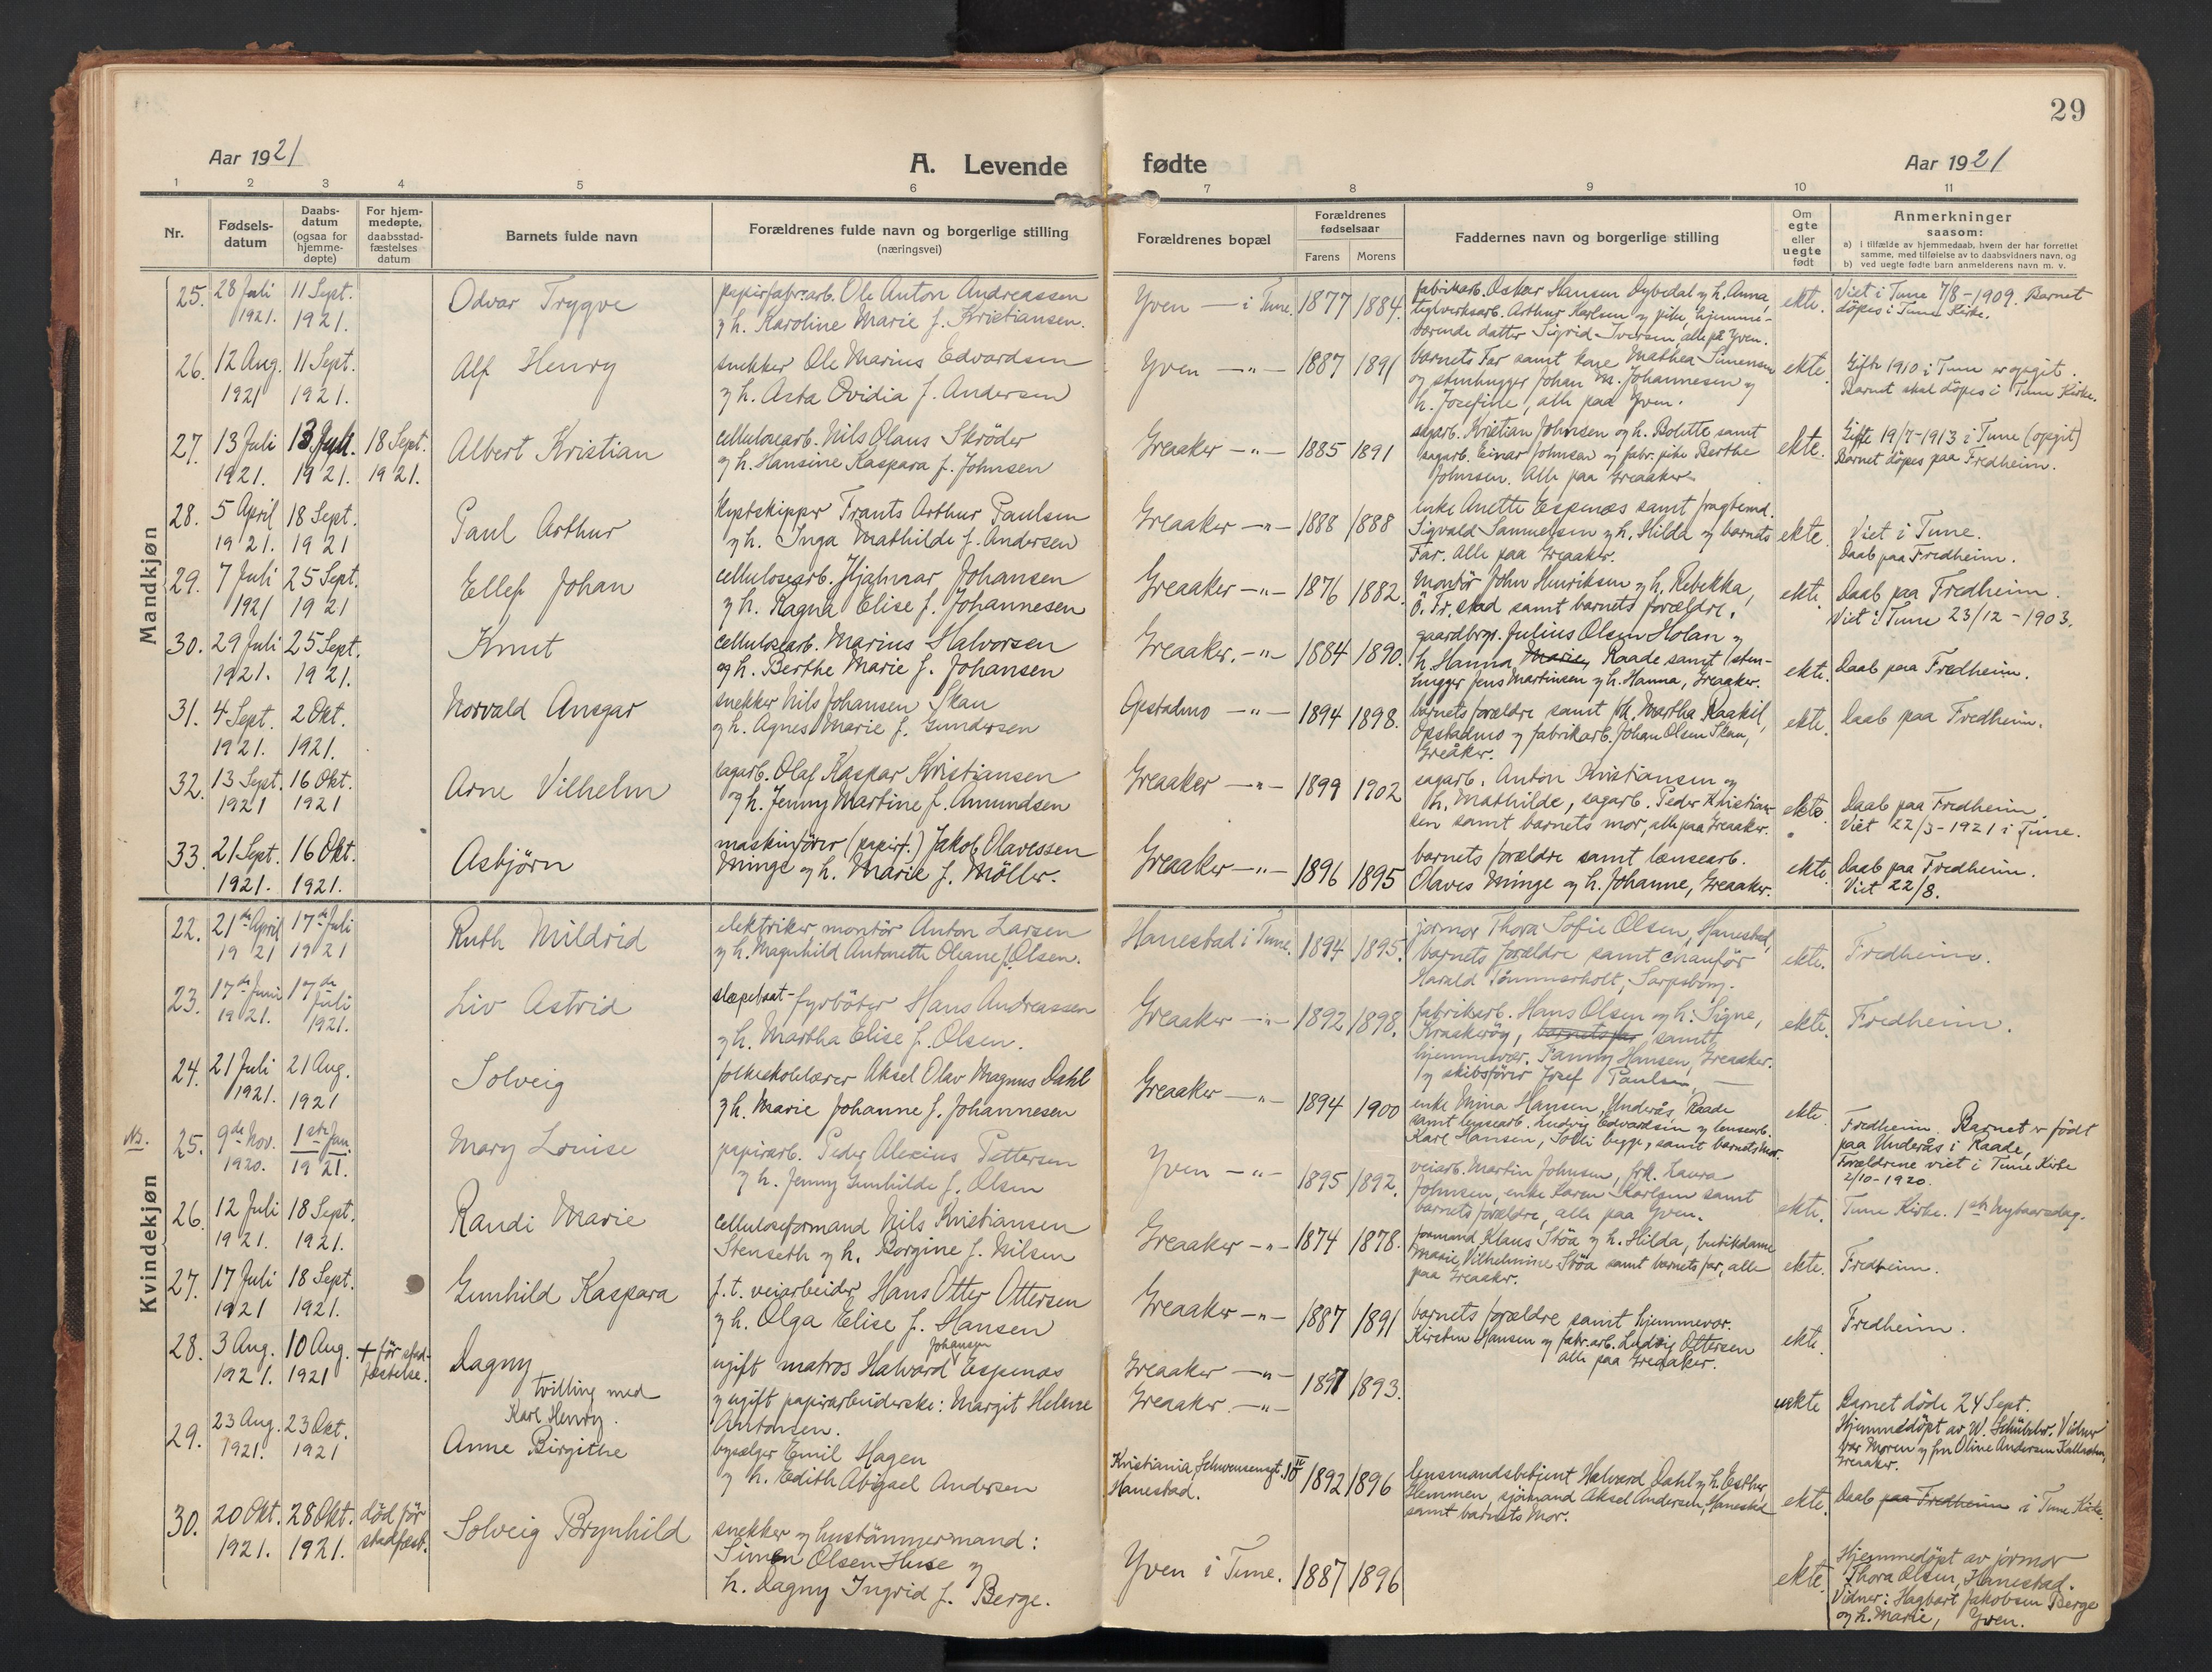 29
Aar 1921
A. Levende fødte
Aar 1921
1 2 3 4 5 6 7 8 9 10 11
Nr.
Fødsels-
datum
Daabs-
datum
(ogsaa for
hjemme-
døpte)
For hjem-
medøpte,
daabsstad-
fæstelses
datum
Barnets fulde navn
Forældrenes fulde navn og borgerlige stilling
(næringsvei)
Forældrenes bopæl
Forældrenes
fødselsaar
Farens Morens
Faddernes navn og borgerlige stilling
Om
egte
eller
uegte
født
Anmerkninger
saasom:
a) i tilfælde av hjemmedaab, hvem der har forrettet
samme, med tilføielse av to daabsvidners navn, og
b) ved uegte fødte barn anmelderens navn m. v.
Mandkjøn
25. 28 Juli 1921. 11 Sept. 1921.
Odvar Trygve
papirfabr.arb. Ole Anton Andreassen
og h. Karoline Marie f. Kristiansen.
Yven — i Tune. 1877 1884.
fabrikarb. Oskar Hansen Dybedal og h. Anna,
teglverksarb. Arthur Karlsen og pike, hjemme-
værende datter Sigrid Iversen, alle på Yven.
ekte.
Viet i Tune 7/8-1909. Barnet
döpes i Tune Kirke.
26. 12 Aug. 1921 11 Sept. 1921.
Alf Henry
snekker Ole Marius Edvardsen
og h. Asta Ovidia f. Andersen
Yven —"— 1887 1891
barnets Far samt kone Mathea Simensen
og stenhugger Johan M. Johannesen og
h. Josefine, alle paa Yven.
ekte.
Gifte 1910 i Tune er opgit.
Barnet skal döpes i Tune Kirke.
27. 13 Juli 1921. 13 Juli. 1921. 18 Sept. 1921.
Albert Kristian
cellulosearb. Nils Olaus Skröder
og h. Hansine Kaspara f. Johnsen
Greaaker —"— 1885 1891
sagarb. Kristian Johnsen og h. Bolette samt
sagarb. Einar Johnsen og fabr. pike Berthe
Johnsen. Alle paa Greaaker.
ekte.
Gifte 19/7-1913 i Tune (opgit)
Barnet döpes paa Fredheim.
28. 5 April 1921. 18 Sept. 1921
Paul Arthur
kystskipper Frants Arthur Paulsen
og h. Inga Mathilde f. Andersen
Greaaker —"— 1888 1888
enke Anette Espenæs samt fragtemd.
Sigvald Samuelsen og h. Hilda og barnets
Far. Alle paa Greaaker.
ekte.
Viet i Tune.
Daab paa Fredheim.
29. 7 Juli 1921 25 Sept. 1921
Ellef Johan
cellulosearb. Hjalmar Johansen
og h. Ragna Elise f. Johannesen
Greaaker —"— 1876 1882.
Montör John Henriksen og h. Rebekka,
Ö. Fr.stad samt barnets forældre.
ekte.
Daab paa Fredheim.
Viet i Tune 23/12-1903.
30. 29 Juli 1921. 25 Sept. 1921.
Knut
cellulosearb. Marius Halvorsen
og h. Berthe Marie f. Johansen
Greaaker. —"— 1884 1890.
gaardbrgr. Julius Olsen Holan og
h. Hanna Marie, Raade samt sten-
hugger Jens Martinsen og h. Hanna, Greaaker.
ekte.
Daab paa Fredheim.
31. 4 Sept. 1921. 2 Okt. 1921.
Norvald Ansgar
snekker Nils Johansen Skau
og h. Agnes Marie f. Gundersen
Opstadmo —"— 1894 1898.
barnets forældre samt frk. Martha Raakil,
Opstadmo og fabrikarb. Johan Olsen Skau,
Greåker.
ekte.
Daab paa Fredheim.
32. 13 Sept. 1921 16 Okt. 1921
Arne Vilhelm
sagarb. Olaf Kaspar Kristiansen
og h. Jenny Martine f. Amundsen
Greaaker —"— 1899 1902
sagarb. Anton Kristiansen og
h. Mathilde, sagarb. Peder Kristian-
sen samt barnets mor, alle paa Greaaker.
ekte.
Daab paa Fredheim.
Viet 22/3-1921 i Tune.
33. 21 Sept. 1921. 16 Okt. 1921.
Asbjörn
maskinförer (papirf.) Jakob Olavessen
Minge og h. Marie f. Möller.
Greaaker —"— 1896 1895
barnets forældre samt lænsearb.
Olaves Minge og h. Johanne, Greaaker.
ekte
Daab paa Fredheim.
Viet 22/8.
Kvindekjøn
22. 21de April 1921 17de Juli 1921
Ruth Mildrid
elektriker montör Anton Larsen
og h. Magnhild Antonette Oleane f. Olsen.
Hanestad i Tune. 1894 1895.
jormor Thora Sofie Olsen, Hanestad,
barnets forældre samt chauför
Harald Tömmerholt, Sarpsborg.
ekte.
Fredheim.
23. 17de Juni 1921. 17de Juli 1921.
Liv Astrid
slæpebaat-fyrböter Hans Andreassen
og h. Martha Elise f. Olsen.
Greaaker —"— 1892 1898.
fabrikarb. Hans Olsen og h. Signe,
Kraakeröy, barnets far samt
hjemmevær. Fanny Hansen, Greaaker.
og skibsförer Josef Paulsen, —
ekte.
Fredheim.
24. 21 Juli 1921. 21 Aug. 1921
Solveig
folkeskolelærer Aksel Olav Magnus Dahl
og h. Marie Johanne f. Johannesen
Greaaker —"— 1894 1900
enke Mina Hansen, Underås, Raade
samt lensearb. Ludvig Edvardsen og lensearb.
Karl Hansen, Solli begge, samt barnets Mor.
ekte
Fredheim. Barnet er født
paa Underås i Raade,
Forældrene viet i Tune Kirke
2/10-1920.
Nb. 25. 9de Nov. 1920. 1ste Jan. 1921.
Mary Louise
papirarb. Peder Alexius Pettersen
og h. Jenny Gunhilde f. Olsen
Yven —"— 1895 1892.
veiarb. Martin Johnsen, frk. Laura
Johnsen, enke Karen Karlsen samt
barnets forældre, alle paa Yven.
ekte.
Tune Kirke. 1ste Nytaarsdag.
26. 12 Juli 1921. 18 Sept. 1921.
Randi Marie
celluloseformand Nils Kristiansen
Stenseth og h. Borgine f. Nilsen
Greaaker —"— 1874 1878.
formand Klaus Stöa og h. Hilda, butikdame
Marie Vilhelmine Stöa samt barnets far, alle
paa Greaaker.
ekte.
Fredheim.
27. 17 Juli 1921 18 Sept. 1921.
Gunhild Kaspara
f. t. veiarbeider Hans Otter Ottersen
og h. Olga Elise f. Hansen
Greaaker —"— 1887 1891
barnets forældre samt hjemmevær.
Kirsten Hansen og fabr.arb. Ludvig Ottersen
alle paa Greaaker.
ekte.
Fredheim.
28. 3 Aug. 1921. 10 Aug. 1921 + för stad-
fæstelse.
Dagny
tvilling med
Karl Henry.
ugift matros Halvard Johansen Espenæs
og ugift papirarbeiderske: Margit Helene
Antonsen.
Greaaker —"—
Greaaker. —"—
1897 1893.
uekte
Barnet döde 24 Sept.
Hjemmedöpt av W. Schübeler. Vidner
var Moren og fru Oline Andersen Kallestein,
Greaaker.
29. 23 Aug. 1921. 23 Okt. 1921
Anne Birgithe
bysælger Emil Hagen
og h. Edith Abigael Andersen
Kristiania, Schwensensgt. 10 IV
Hanestad.
1892 1896
lensmandsbetjent Halvard Dahl og h. Esther,
Glemmen, sjömand Aksel Andersen, Hanestad
samt barnets Mor.
ekte.
Daab paa Fredheim i Tune Kirke.
30. 20 Okt. 1921. 28 Okt. 1921. död för
stadfæst.
Solveig Brynhild
snekker og hustömmermand:
Simen Olsen Huse og
h. Dagny Ingrid f. Berge.
Yven i Tune. 1887 1896
ekte.
Hjemmedöpt av jormor
Thora Olsen, Hanestad.
Vidner: Hagbart Jakobsen Berge
og h. Marie, Yven.